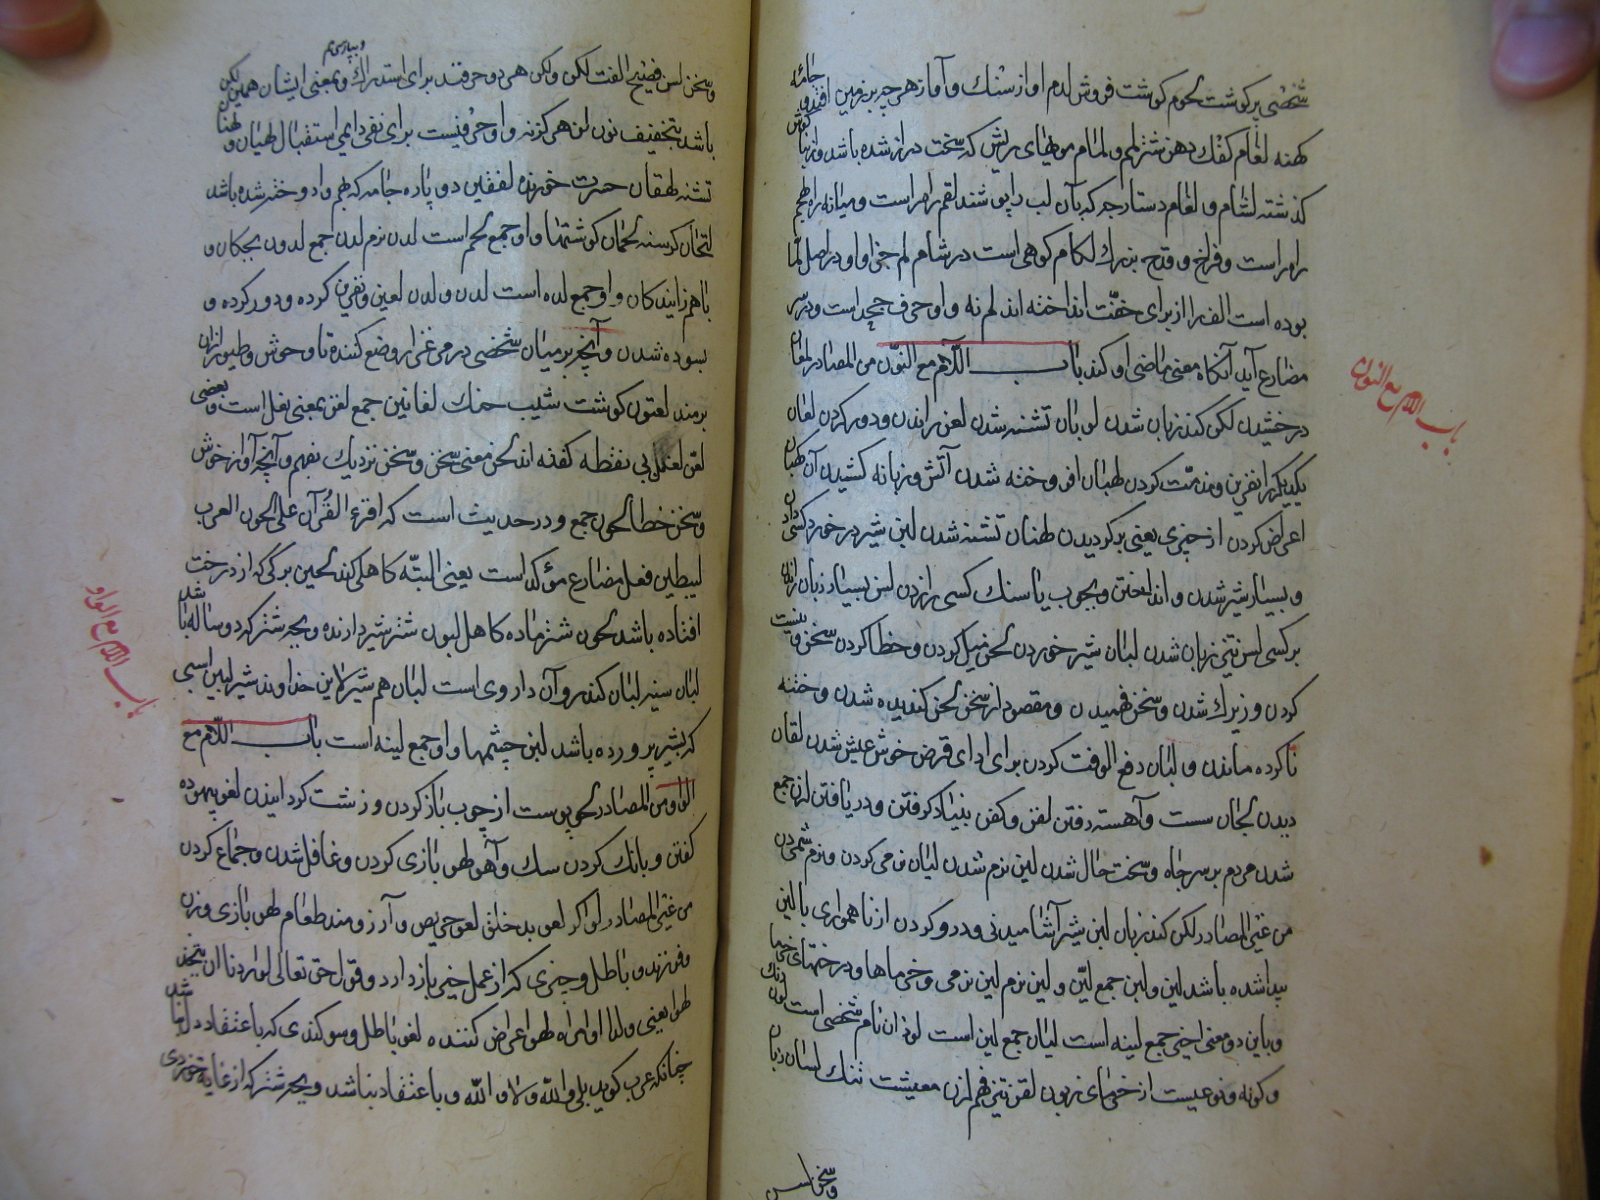 شخصی پر کوشت لحوم کوشت فروش لدم اواز سنک و آواز هر چه بر زمین افتد و جامهٔ
کهنه لغام کفک دهن شتر لمم و لمام مویهای پیش که سخت دراز شده باشد و از بنا کوش
کذشته لثام و لفام دستارچه که بآن لب را پوشند لقم راه راست و میانه راه لهجم
راه راست و فراخ و قدح بزرك لکام کوهی است در شام لم چرا و او در اصل لما
بوده است الف را از برای خفّت انداخته اند لم نه و او حرف جحد است و بر سر
مضارع آید آنکاه معنی ماضی او کند باب اللّام مع النّون من المصادر لمعان
درخشیدن لکن کند زبان شدن لوبان تشنه شدن لعن راندن و دور کردن لعان
یکدیکر را نفرین و مذمّت کردن لهبان افروخته شدن آتش و زبانه کشیدن آن لهبان
اعراض کردن از چیزی یعنی بر کردیدن لهثان تشنه شدن لبن شیر در خورد کسی دادن
و بسیار شیر شدن و انداختن و بچوب یا سنك کسی را زدن لسن بسیار زبان راندن
بر کسی لسن تیز زبان شدن لبان شیر خوردن لحن میل کردن و خطا کردن سخن و نیست
کردن و زیرك شدن و سخن فهمیدن و مقصود از سخن لخن کندیده شدن و خته
ناکرده ماندن و لبان دفع الوقت کردن برای ادای قرض خوش عیش شدن لقان
دیدن لجان سست و آهسته رفتن لقن و کفن بنیاد کرفتن و دریافتن لزن جمع
شدن مردم بر سر چاه و سخت حال شدن لین نرم شدن لیان نرمی کردن و نرم شمردن
من غیر المصادر لکن کند زبان لبن شیر آشامیدنی و درد کردن از ناهمواری بالین
پیدا شده باشد لین و لین جمع لیّن و لین نرم لین نرمی و خرماها و درختهای خرما
و باین دو معنی اخیر جمع لینه است لیان جمع لین است لوذان نام شخصی است لون رنك
و کونه و نوعیست از خرمای زبون لقن تیز فهم لزن معیشت تنك لسان زبان
و سخن لسن
و بپارسی هم
و سخن لسن فصیح الفت لکن ولکن هر دو حرفند برای استدراك و معنی ایشان همین لکن
باشد بتخفیف نون لن هرکز نه و او حرفیست برای نفی دایمی استقبال لهبان و لهثان
تشنه لهفان حسرت خورنده لفقین دو پاره جامه که بهم وا دوخته شده باشد
لتحان کرسنه لحمان کوشتها و او جمع لحم است لدن نرم لدن جمع لدون بچکان و
باهم زایندکان و او جمع لده است لدن و لدن لعین و نفرین کرده و دور کرده و
بسوده شدن و آنچه بر میان شخصی در مرغزار وضع کننده تا وحوش و طیور از آن
برمند لغنون کوشت شیب حنك لغانین جمع لغن بمعنی لعل است و بعضی
لعن لعلّ بی نقطه کفته اند لحن معنی سخن و سخن نزدیك بفهم و آنچه آواز خوش
و سخن خطا لحون جمع و در حدیث است که اقرء القرآن علی لحون العرب
لیبطئن فعل مضارع مؤکد است یعنی البتّه کاهلی کند لجین برکی که از درخت
افتاده باشد لجون شتر ماده کاهل لبون شتر شیر دارنده و بچه شتر که دو ساله باشد
لبان سینه لبان کندر و آن داروی است لبان هم شیر لابن خداوند شیر لبین اسبی
که بشیر پرورده باشد لبن چشمها و او جمع لینه است باب اللّام مع
الواو من المصادر لحو پوست از چوب باز کردن و زشت کردانیدن لغو بیهوده
کفتن و بانك کردن سك و آهو لهو بازی کردن و غافل شدن و جماع کردن
من غیر المصادر لو اکر لعو بد خلق لعو حریص و آرزومند طعام لهو بازی و زن
و فرزند و باطل و چیزی که از عمل خیر باز دارد و قوله حق تعالی لو اردنا ان نتخذ
لهوا یعنی ولدا او امراه لهو اعراض کننده لغو باطل و سوکندی که باعتقاد دل نباشد
چنانکه عرب کوید بلی و اللّه و لا و اللّه و باعتقاد نباشد و بچه شتر که از غایت خوردی
باب اللام مع النون
باب اللام مع الواو